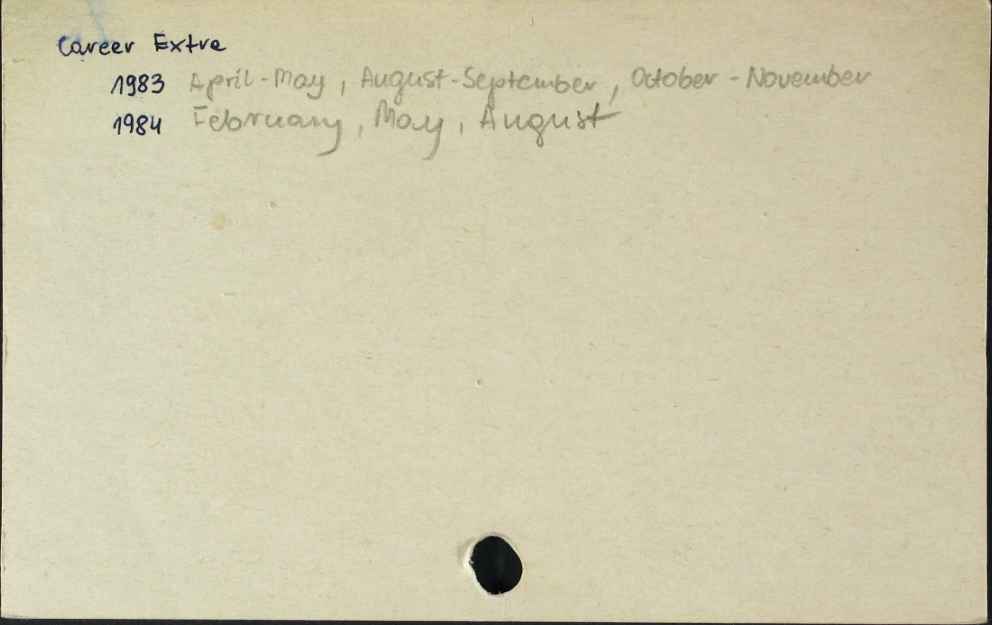 Career Extra
1983 April-May, August-September, October - November
1984 February, May, August